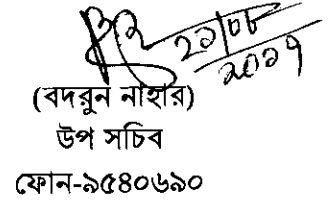 ২১/০৮
২০১৭
(বদরুন নাহার)
উপ সচিব
ফোন-৯৫৪০৬৯০